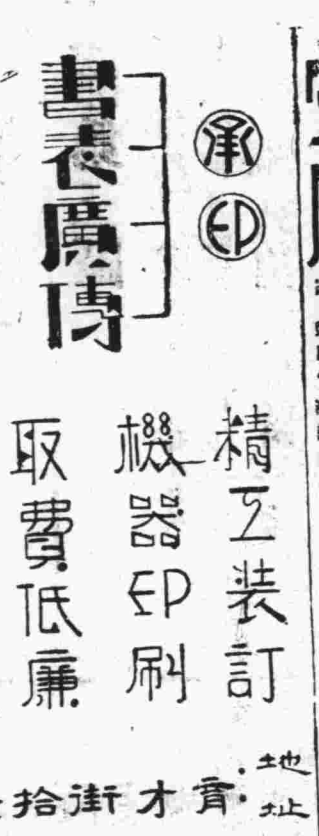 承印
書表廣傳
精工裝訂
機器印刷
取費低廉
地址:育才街拾